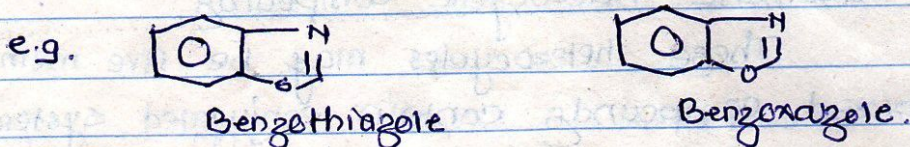 e.g. N N
S O
Benzothiazole Benzoxazole.